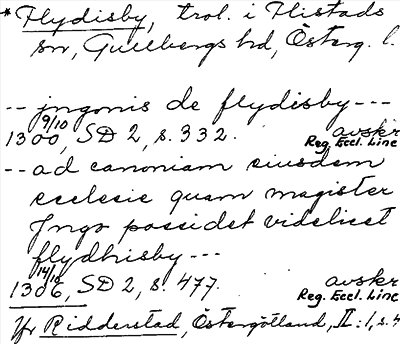 * Flydisby, trol. i Flistads
sn, Gullbergs hd, Österg. l.
-- jngonis de flydisby ---
9/10 1300, SD 2, s. 332. avskr
Reg. Eccl. Linc
-- ad canoniam eiusdem
ecclesie quam magister
Jngo possidet videlicet
flydhisby ---
14/10 1306, SD 2, s. 477. avskr
Reg. Eccl. Linc
Jfr Ridderstad, Östergötland, II:1, s. 4